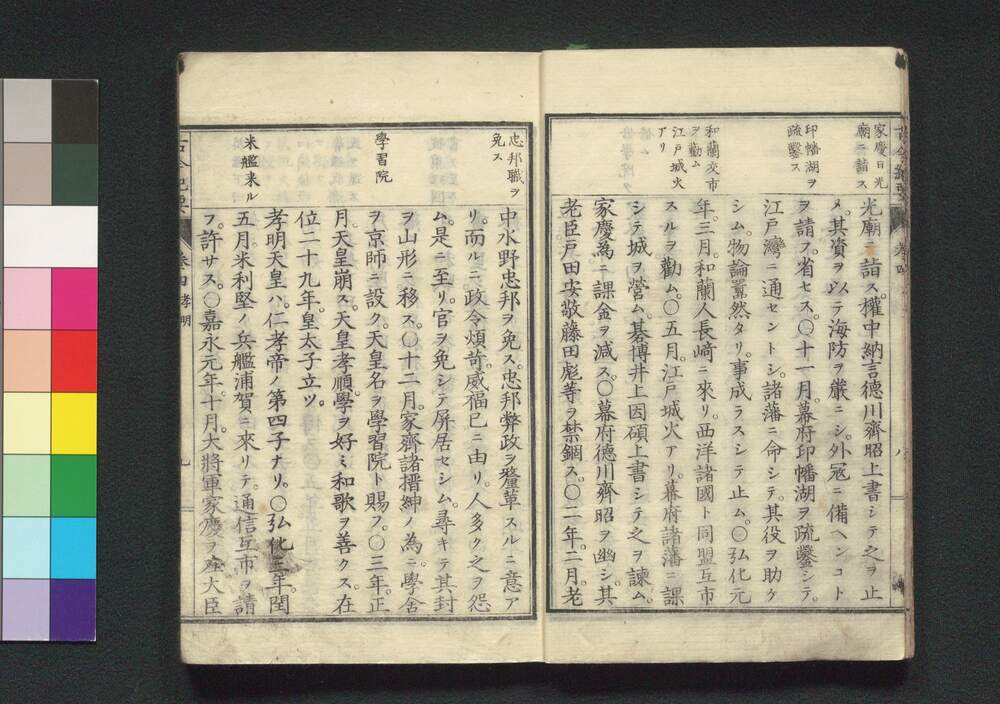 家慶日光
廟ニ詣ス
印幡湖ヲ
疏鑿ス
和蘭交市
ヲ勸ム
江戸城火
アリ
光廟ニ詣ス。權中納言德川齊昭上書シテ之ヲ止
メ。其資ヲ以テ海防ヲ嚴ニシ。外冦ニ備ヘンコト
ヲ請フ。省セス。〇十一月。幕府印幡湖ヲ疏鑿シテ。
江戸灣ニ通セントシ。諸藩ニ命シテ。其役ヲ助ケ
シム。物論囂然タリ。事成ラスシテ止ム。〇弘化元
年。三月。和蘭人長崎ニ來リ。西洋諸國ト同盟互市
スルヲ勸ム。〇五月。江戸城火アリ。幕府諸藩ニ課
シテ城ヲ營ム。碁博井上因碩上書シテ之ヲ諫ム。
家慶為ニ課金ヲ減ス。〇幕府德川齊昭ヲ幽シ。其
老臣戸田安敬藤田彪等ヲ禁錮ス。〇二年。二月。老
八
忠邦職ヲ
免ス
學習院
米艦来ル
中水野忠邦ヲ免ス。忠邦弊政ヲ釐革スルニ意ア
リ。而ルニ政令煩苛。威福已ニ由リ。人多ク之ヲ怨
ム。是ニ至リ。官ヲ免シテ屏居セシム。尋キテ其封
ヲ山形ニ移ス。〇十二月。家齊諸搢紳ノ為ニ。學舍
ヲ京師ニ設ク。天皇名ヲ學習院ト賜フ。〇三年。正
月。天皇崩ス。天皇孝順。學ヲ好ミ和歌ヲ善クス。在
位二十九年。皇太子立ツ。
孝明天皇ハ。仁孝帝ノ第四子ナリ。〇弘化三年。閏
五月。米利堅ノ兵艦浦賀ニ來リテ。通信互市ヲ請
フ。許サス。〇嘉永元年。十月。大將軍家慶ヲ左大臣
古今紀要
卷四
孝明
九